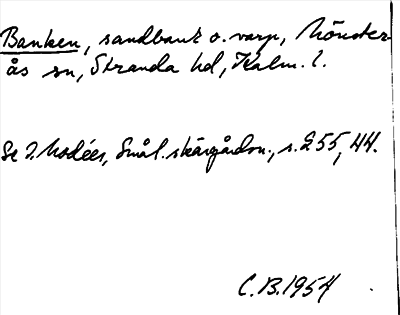 Banken, sandbank o. varp, Mönster-
ås sn, Stranda hd, Kalm. l.
Se I. Modéer, Smål. skärgårdsn., s. 255, 44.
C.B. 1954